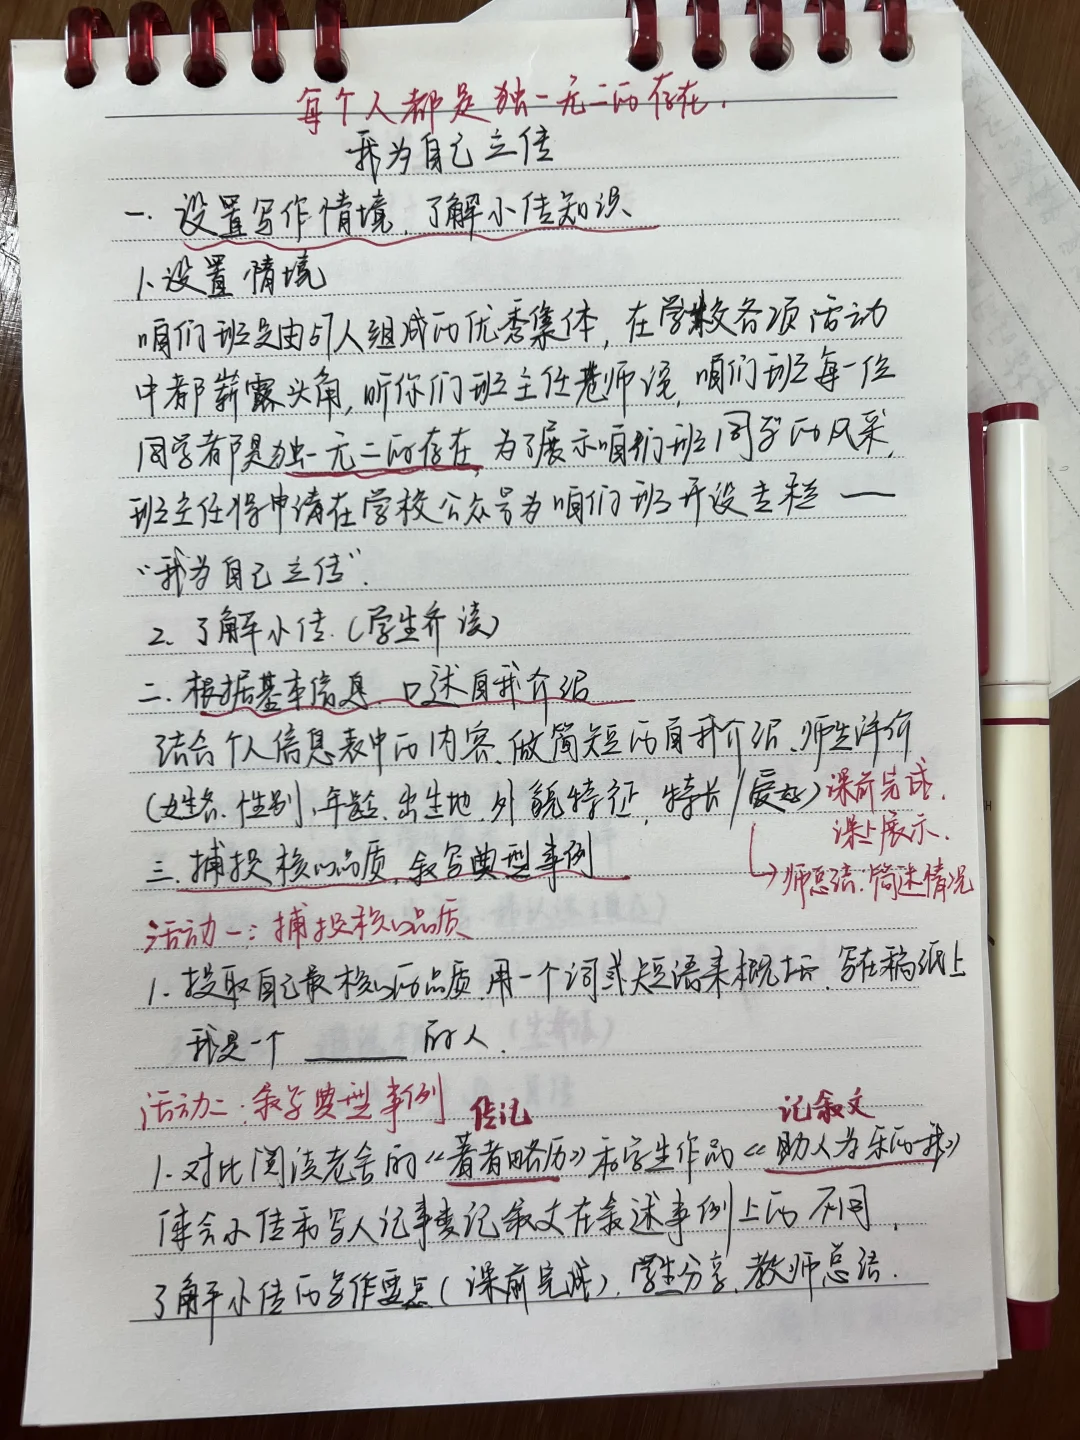 每个人都是独一无二的存在.
我为自己立传
一. 设置写作情境, 了解小传知识
1. 设置情境
咱们班是由57人组成的优秀集体, 在学校各项活动
中都崭露头角, 听你们班主任老师说, 咱们班每一位
同学都是独一无二的存在, 为了展示咱们班同学的风采,
班主任将申请在学校公众号为咱们班开设专栏——
“我为自己立传”.
2. 了解小传. (学生齐读)
二. 根据基本信息, 口述自我介绍
结合个人信息表中的内容, 做简短的自我介绍、师生评价
(姓名、性别、年龄、出生地、外貌特征, 特长/爱好) 课前完成,
课上展示.
→师总结: 简述情况
三. 捕捉核心品质, 叙写典型事例
活动一: 捕捉核心品质
1. 提取自己最核心的品质, 用一个词或短语来概括, 写在稿纸上
我是一个 ______ 的人.
活动二: 叙写典型事例
传记 记叙文
1. 对比阅读老舍的《著者略历》和学生作品《助人为乐的我》
体会小传和写人记事类记叙文在叙述事例上的不同,
了解小传的写作要点 (课前完成), 学生分享, 教师总结.